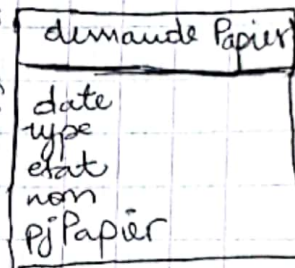 demande Papier
date
type
etat
nom
pjPapier